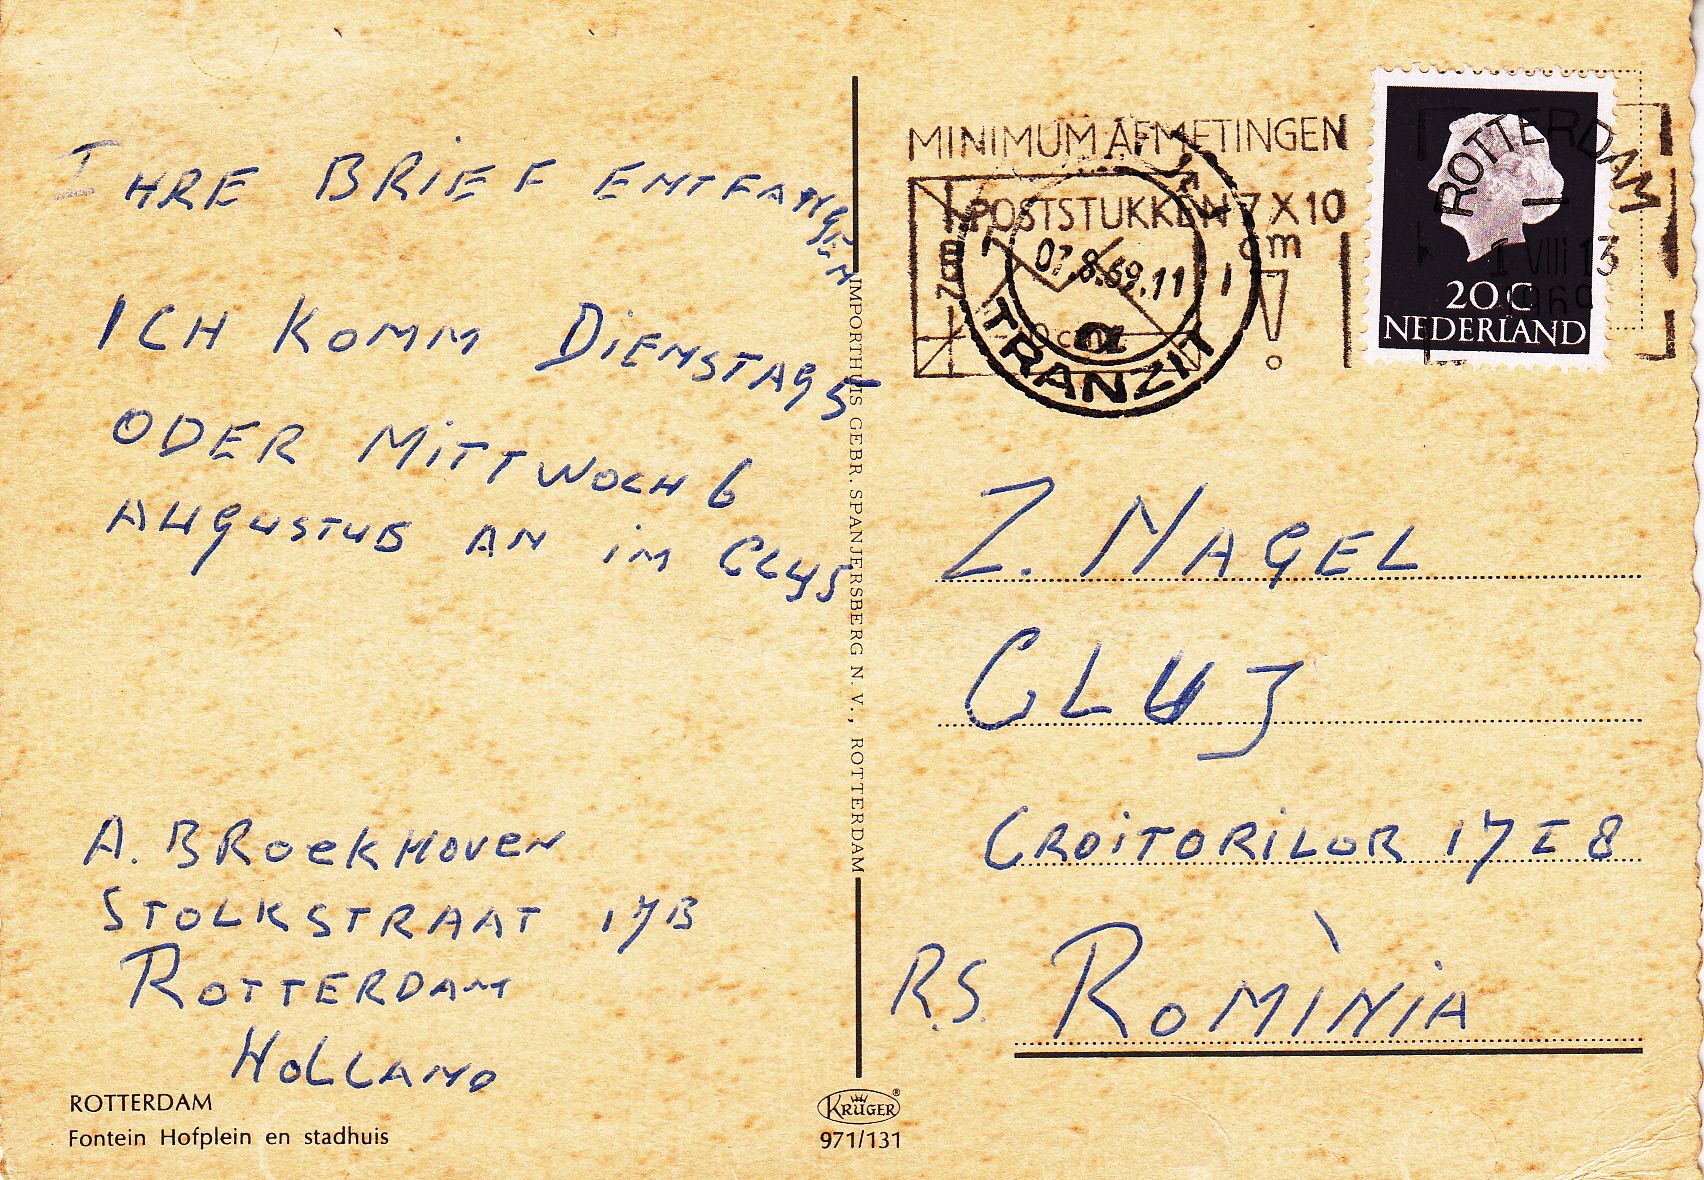 IHRE BRIEF ENTFANGEN
ICH KOMM DIENSTAG 5
ODER MITTWOCH 6
AUGUSTUS AN IM CLUJ
A. BROEKHOVEN
STOLKSTRAAT 17B
ROTTERDAM
HOLLAND
ROTTERDAM
Fontein Hofplein en stadhuis
IMPORTHUIS GEBR. SPANJERSBERG N.V., ROTTERDAM
KRÜGER®
971/131
MINIMUM AFMETINGEN
POSTSTUKKEN 7 X 10
cm
!
07.8.69.11
TRANZIT
ROTTERDAM
1 VIII 13
1969
20C
NEDERLAND
Z. NAGEL
CLUJ
CROITORILOR 17 I 8
R.S. ROMÌNIA